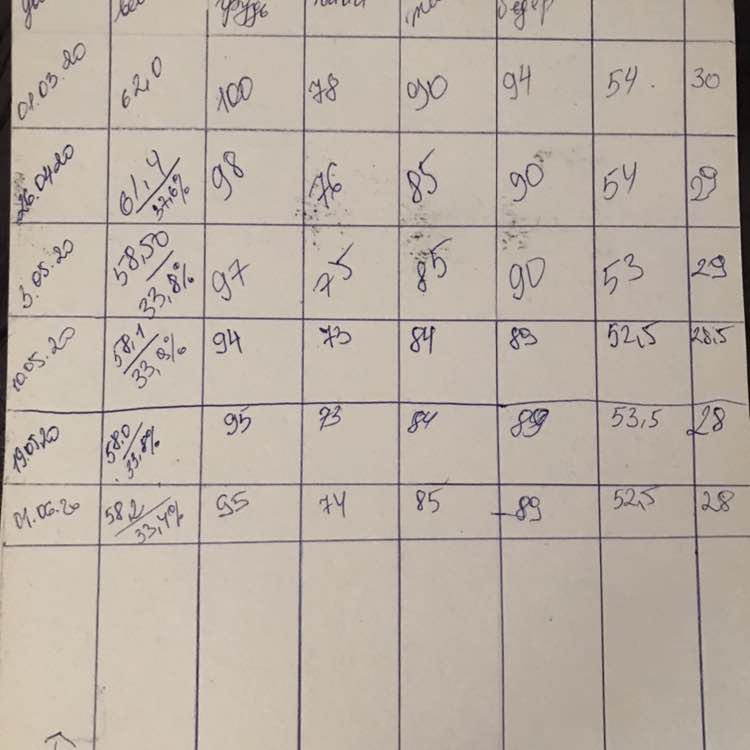 грудь
01.03.20 62,0 100 78 90 94 54. 30
26.04.20 61,4/37,6% 98 76 85 90 54 29
3.05.20 58,50/33,8% 97 75 85 90 53 29
10.05.20 58,1/33,8% 94 73 84 89 52,5 28,5
19.05.20 58,0/33,8% 95 73 84 89 53,5 28
01.06.20 58,2/33,4% 95 74 85 89 52,5 28